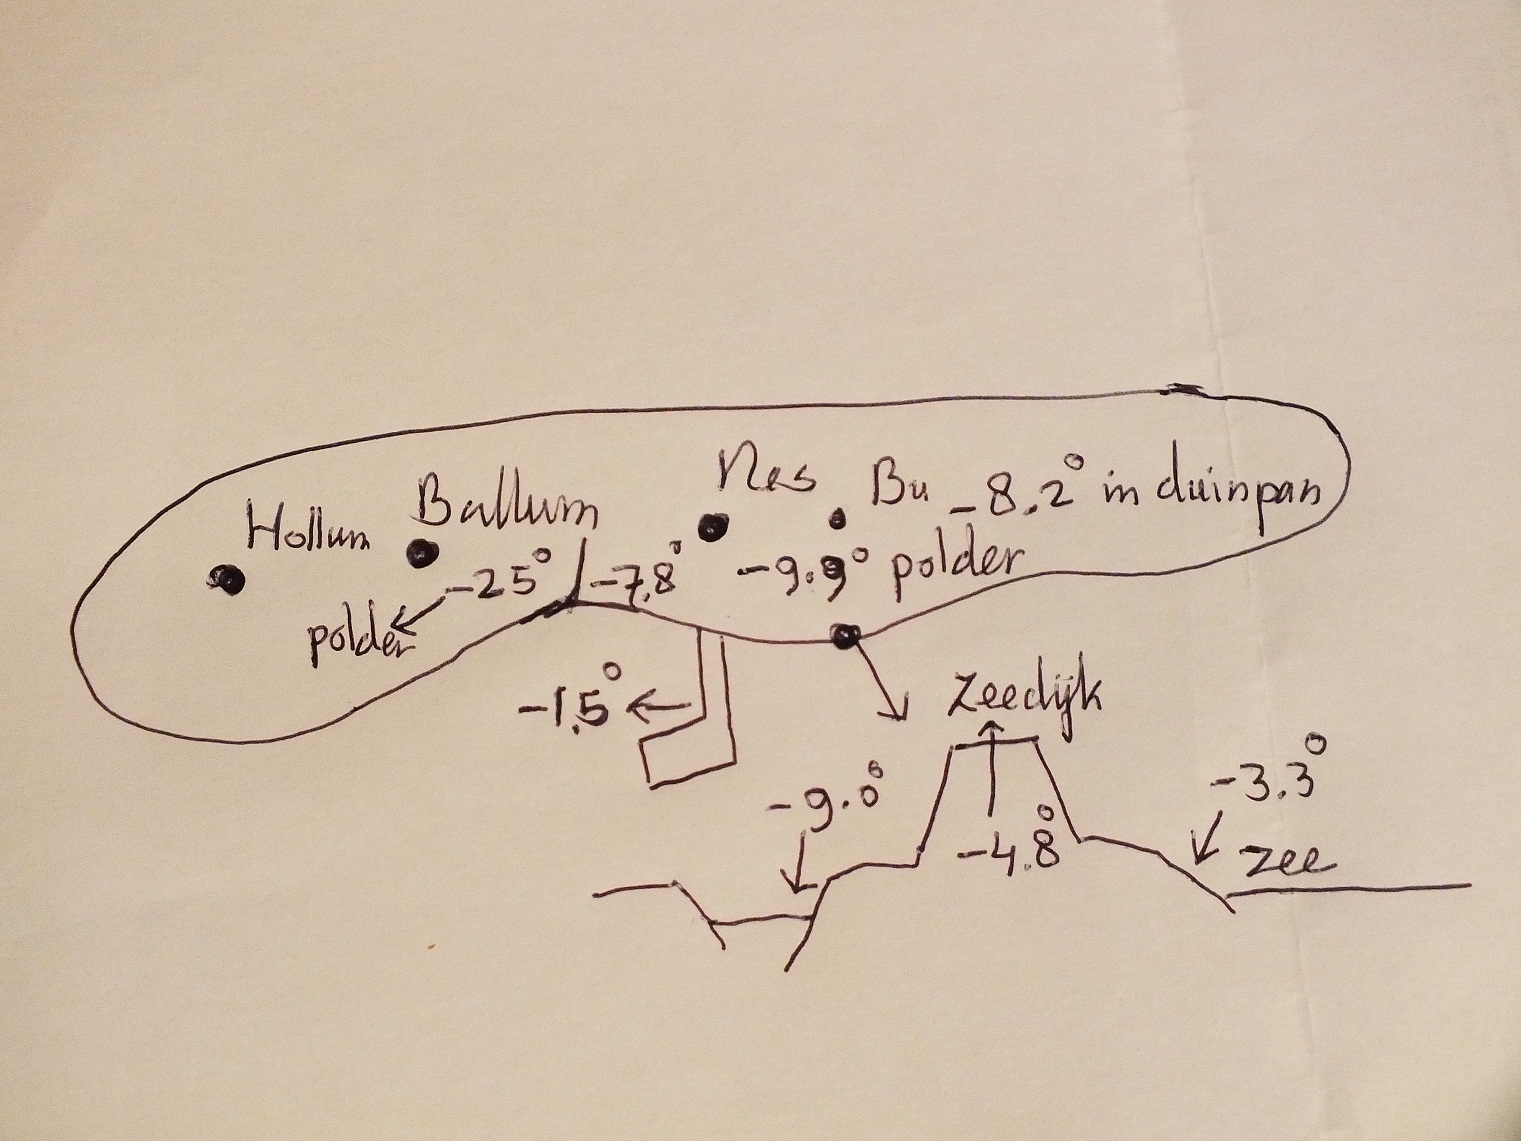 Nes
Bu -8.2° in duinpan
Ballum
Hollum
-25° -7,8° -9.9° polder
polder
-1,5°
zeedijk
-3.3°
-9.0°
-4.8°
zee